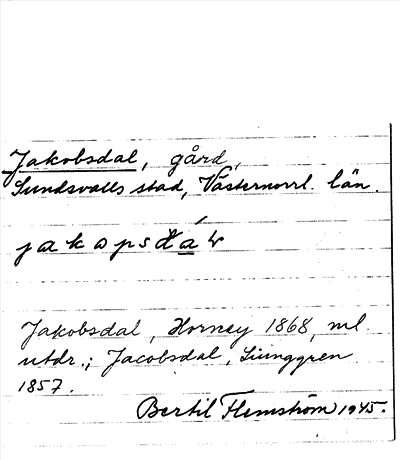 Jakobsdal, gård,
Sundsvalls stad, Västernorrl. län.
Jakobsdal, Horney 1868, ml.
utdr.; Jacobsdal, Ljunggren
1857.
Bertil Flemström 1945.